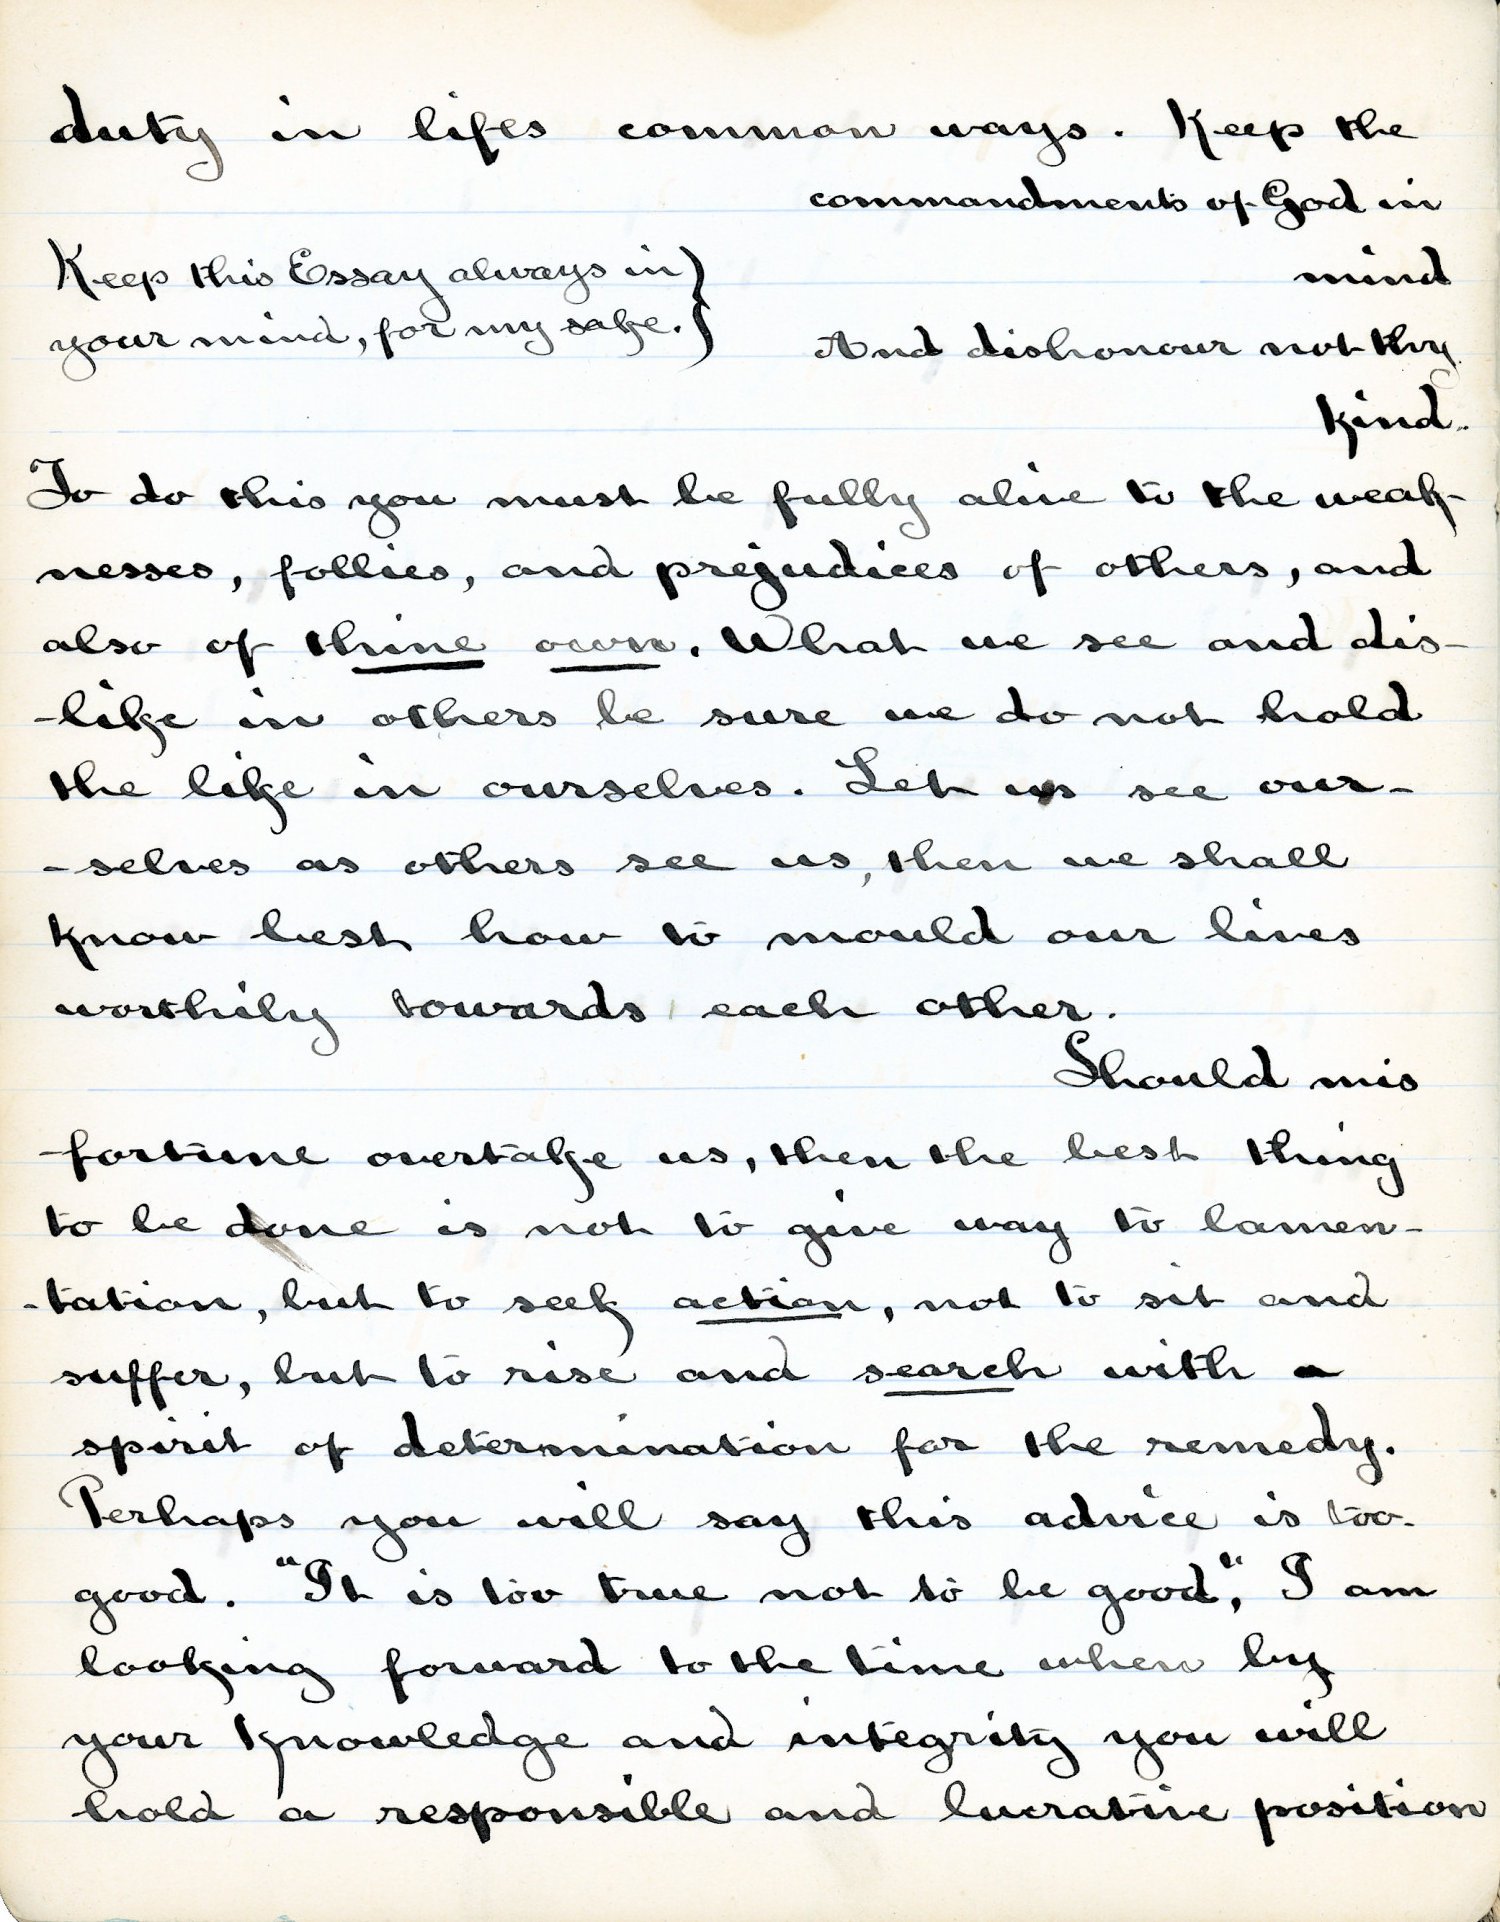 duty in lifes common ways. Keep the
commandments of God in
mind
Keep this Essay always in }
your mind, for my sake. }
And dishonour not thy
kind.
To do this you must be fully alive to the weak-
nesses, follies, and prejudices of others, and
also of thine own. What we see and dis-
-like in others be sure we do not hold
the like in ourselves. Let us see our-
-selves as others see us, then we shall
know best how to mould our lives
worthily towards each other.
Should mis
-fortune overtake us, then the best thing
to be done is not to give way to lamen-
-tation, but to seek action, not to sit and
suffer, but to rise and search with a
spirit of determination for the remedy.
Perhaps you will say this advice is too
good. "It is too true not to be good", I am
looking forward to the time when by
your knowledge and integrity you will
hold a responsible and lucrative position